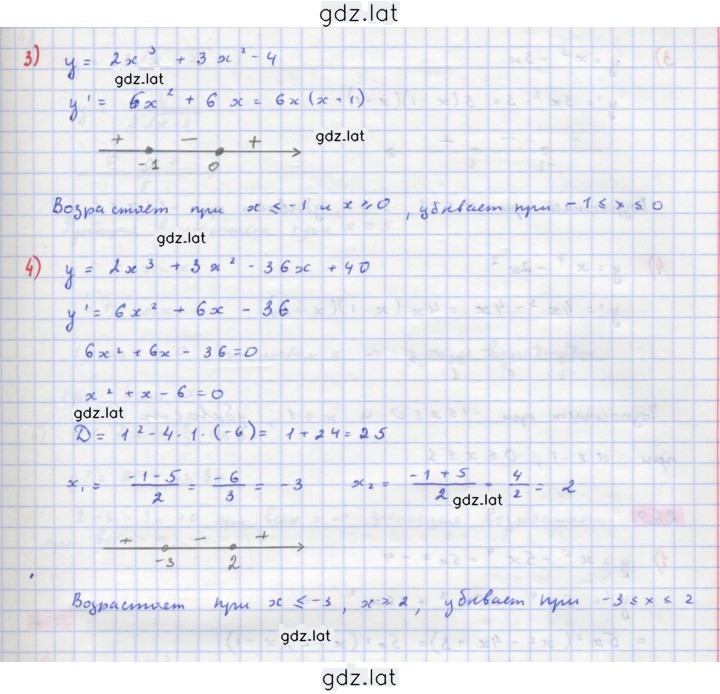 gdz.lat
3) y = 2x³ + 3x² - 4
gdz.lat
y' = 6x² + 6x = 6x(x+1)
gdz.lat
+ - +
-1 0
Возрастает при x ≤ -1 и x ≥ 0, убывает при -1 ≤ x ≤ 0
gdz.lat
4) y = 2x³ + 3x² - 36x + 40
y' = 6x² + 6x - 36
6x² + 6x - 36 = 0
x² + x - 6 = 0
gdz.lat
D = 1² - 4·1·(-6) = 1 + 24 = 25
x₁ = (-1-5)/2 = -6/3 = -3 x₂ = (-1+5)/2 = 4/2 = 2
gdz.lat
+ - +
-3 2
Возрастает при x ≤ -3, x ≥ 2, убывает при -3 ≤ x ≤ 2
gdz.lat
gdz.lat